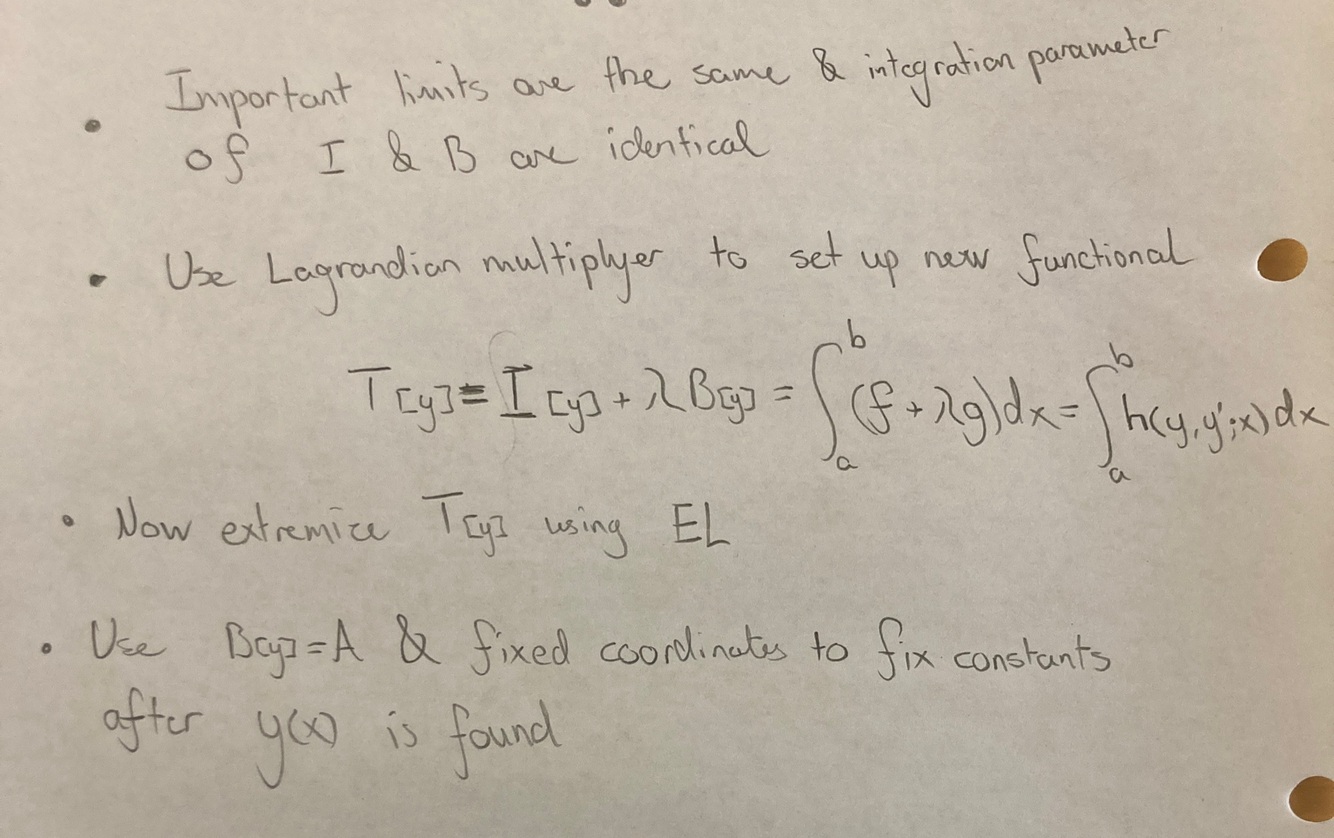 • Important limits are the same & integration parameter
of I & B are identical
• Use Lagrandian multiplyer to set up new functional
T[y] ≡ I[y] + λB[y] = ∫_a^b (f + λg)dx = ∫_a^b h(y,y';x)dx
• Now extremize T[y] using EL
• Use B[y]=A & fixed coordinates to fix constants
after y(x) is found